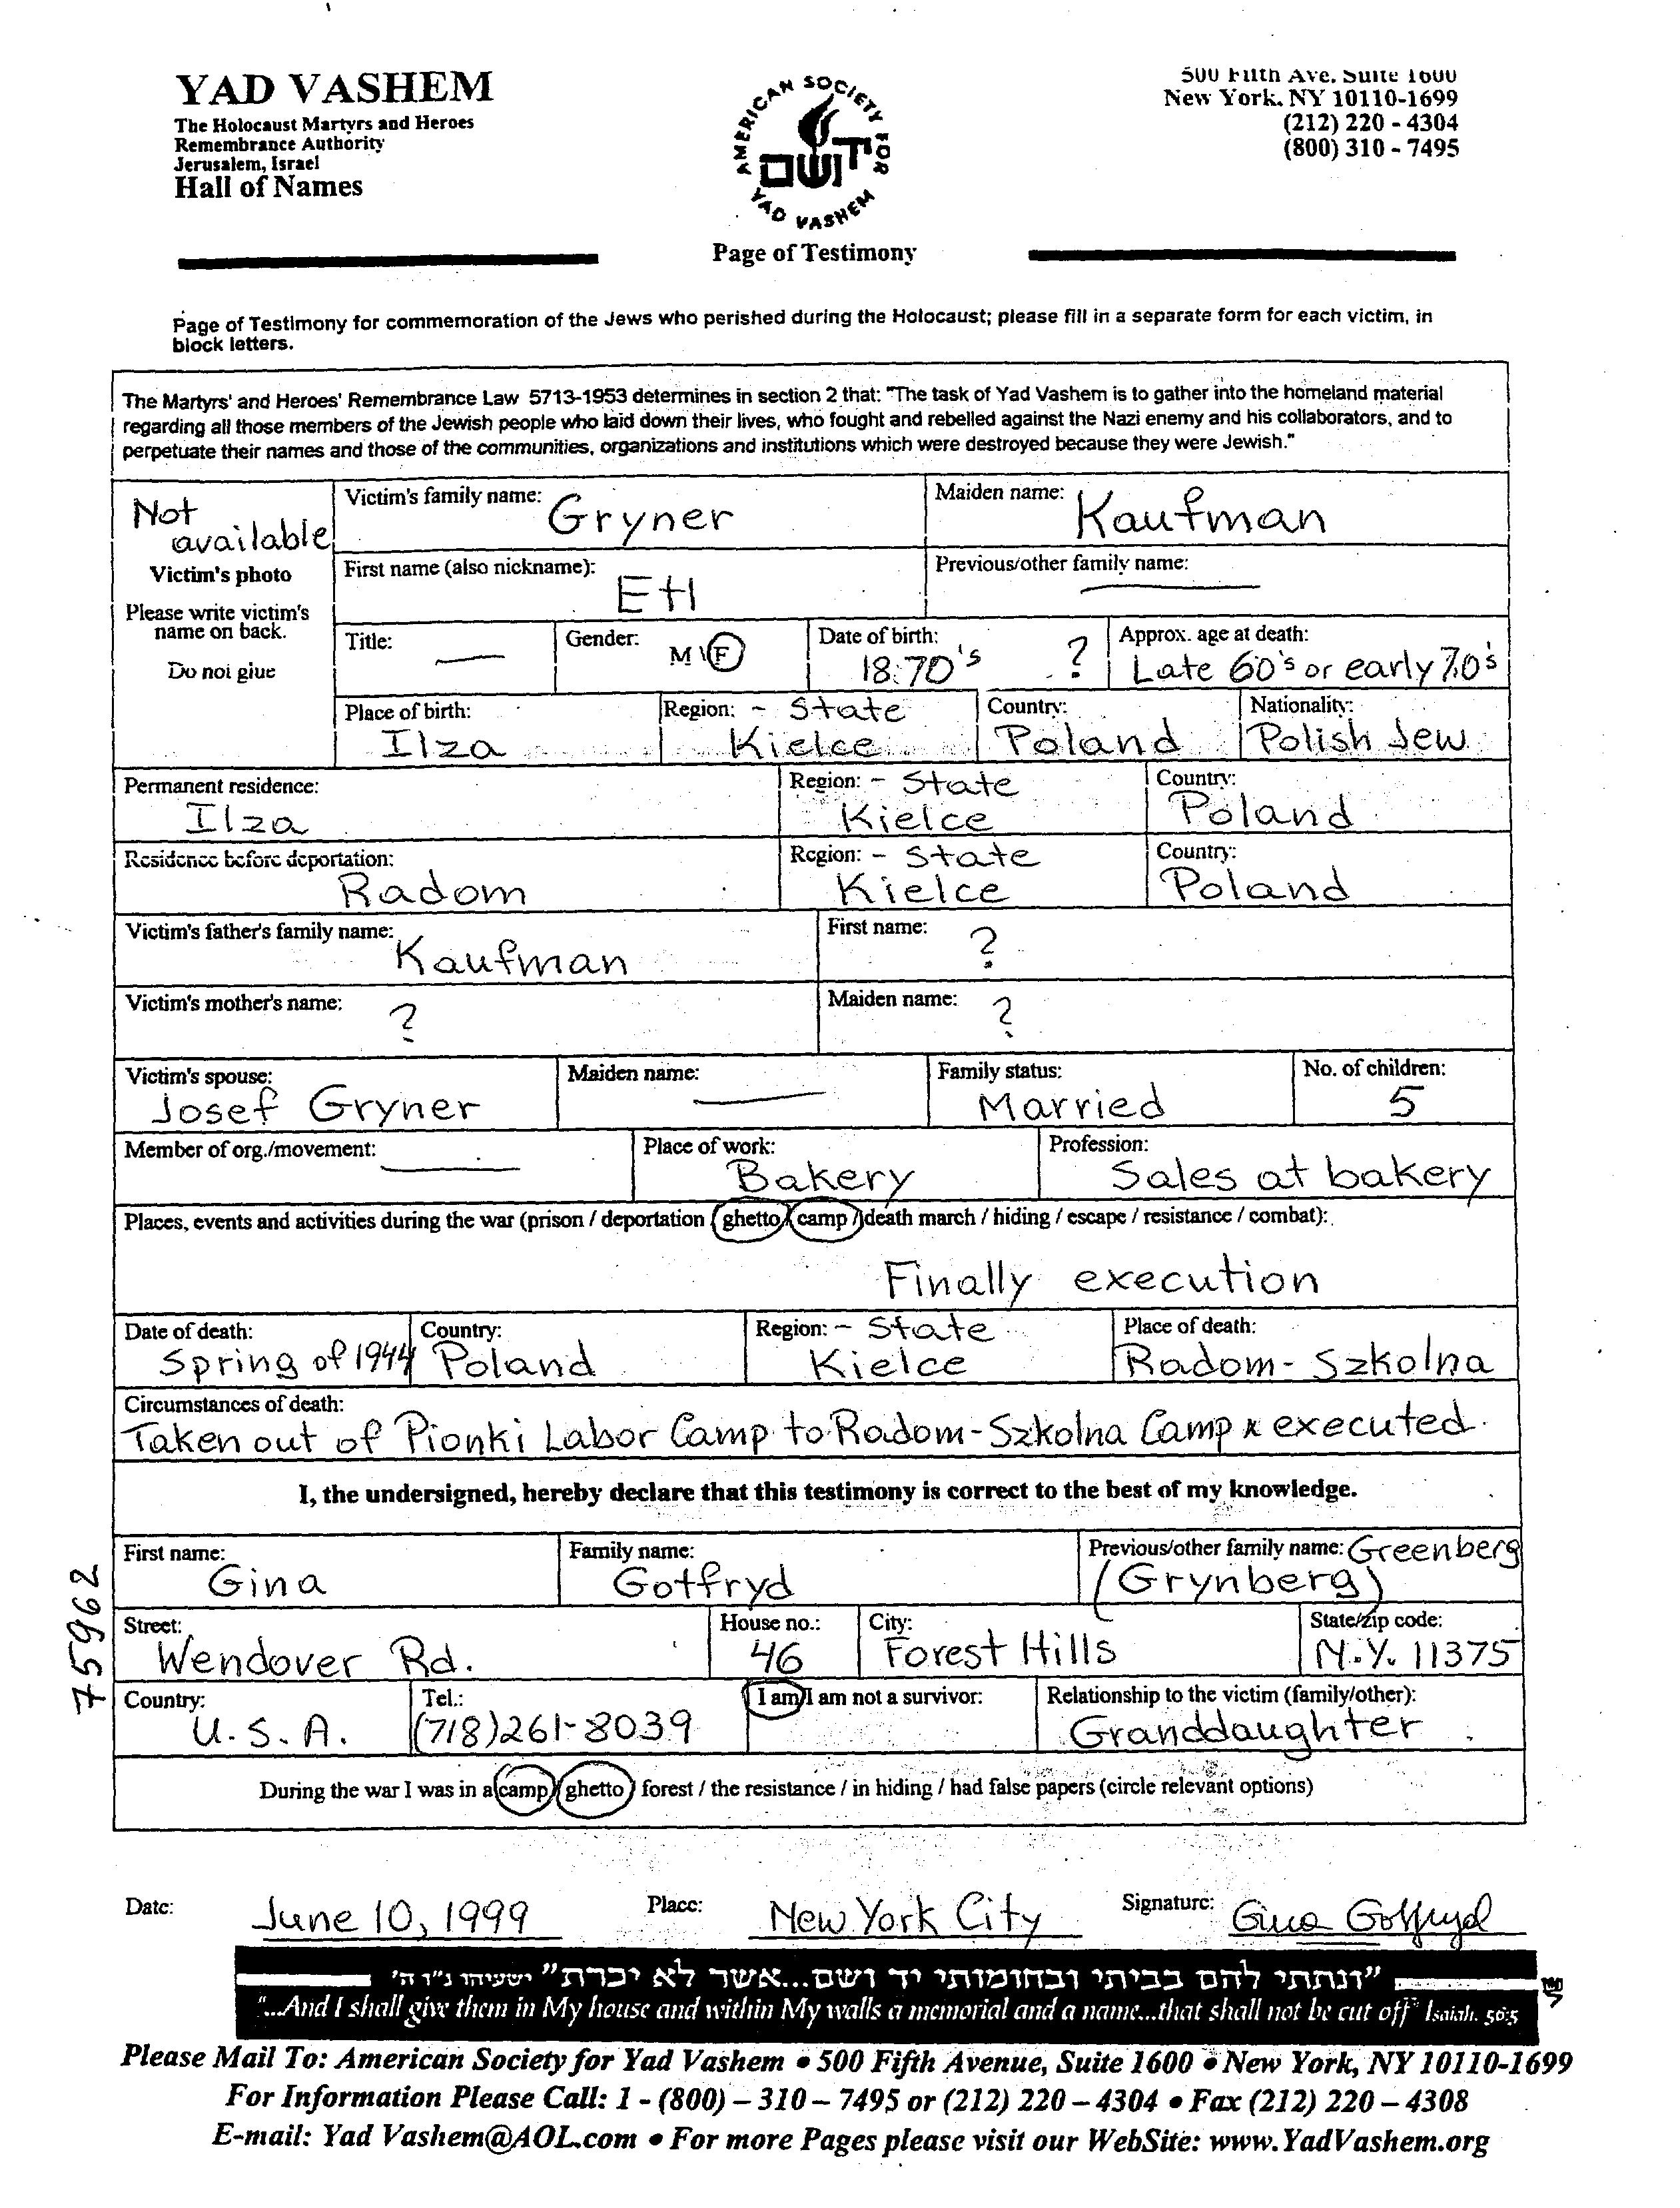 500 Fifth Ave. Suite 1600
YAD VASHEM
New York, NY 10110-1699
The Holocaust Martyrs and Heroes
(212) 220 - 4304
Remembrance Authority
(800) 310 - 7495
Jerusalem, Israel
Hall of Names
AMERICAN SOCIETY FOR
ושם יד
YAD VASHEM
Page of Testimony
Page of Testimony for commemoration of the Jews who perished during the Holocaust; please fill in a separate form for each victim, in
block letters.
The Martyrs' and Heroes' Remembrance Law 5713-1953 determines in section 2 that: "The task of Yad Vashem is to gather into the homeland material
regarding all those members of the Jewish people who laid down their lives, who fought and rebelled against the Nazi enemy and his collaborators, and to
perpetuate their names and those of the communities, organizations and institutions which were destroyed because they were Jewish."
Not
available
Victim's photo
Please write victim's
name on back.
Do not glue
Victim's family name: Gryner Maiden name: Kaufman
First name (also nickname): Etl Previous/other family name: —
Title: — Gender: M \ F Date of birth: 1870's ? Approx. age at death: Late 60's or early 70's
Place of birth: Ilza Region: - State Kielce Country: Poland Nationality: Polish Jew
Permanent residence: Ilza Region: - State Kielce Country: Poland
Residence before deportation: Radom Region: - State Kielce Country: Poland
Victim's father's family name: Kaufman First name: ?
Victim's mother's name: ? Maiden name: ?
Victim's spouse: Josef Gryner Maiden name: — Family status: Married No. of children: 5
Member of org./movement: — Place of work: Bakery Profession: Sales at bakery
Places, events and activities during the war (prison / deportation / ghetto / camp / death march / hiding / escape / resistance / combat):
Finally execution
Date of death: Spring of 1944 Country: Poland Region: - State Kielce Place of death: Radom - Szkolna
Circumstances of death:
Taken out of Pionki Labor Camp to Radom-Szkolna Camp & executed.
I, the undersigned, hereby declare that this testimony is correct to the best of my knowledge.
First name: Gina Family name: Gotfryd Previous/other family name: Greenberg (Grynberg)
Street: Wendover Rd. House no.: 46 City: Forest Hills State/zip code: N.Y. 11375
Country: U.S.A. Tel.: (718)261-8039 I am/I am not a survivor: Relationship to the victim (family/other): Granddaughter
During the war I was in a camp / ghetto / forest / the resistance / in hiding / had false papers (circle relevant options)
75962
Date: June 10, 1999 Place: New York City Signature: Gina Gotfryd
"ונתתי להם בביתי ובחומותי יד ושם...אשר לא יכרת" ישעיהו נ"ו ה'
"...And I shall give them in My house and within My walls a memorial and a name...that shall not be cut off" Isaiah. 56:5
Please Mail To: American Society for Yad Vashem • 500 Fifth Avenue, Suite 1600 • New York, NY 10110-1699
For Information Please Call: 1 - (800) – 310 – 7495 or (212) 220 – 4304 • Fax (212) 220 – 4308
E-mail: Yad Vashem@AOL.com • For more Pages please visit our WebSite: www.YadVashem.org